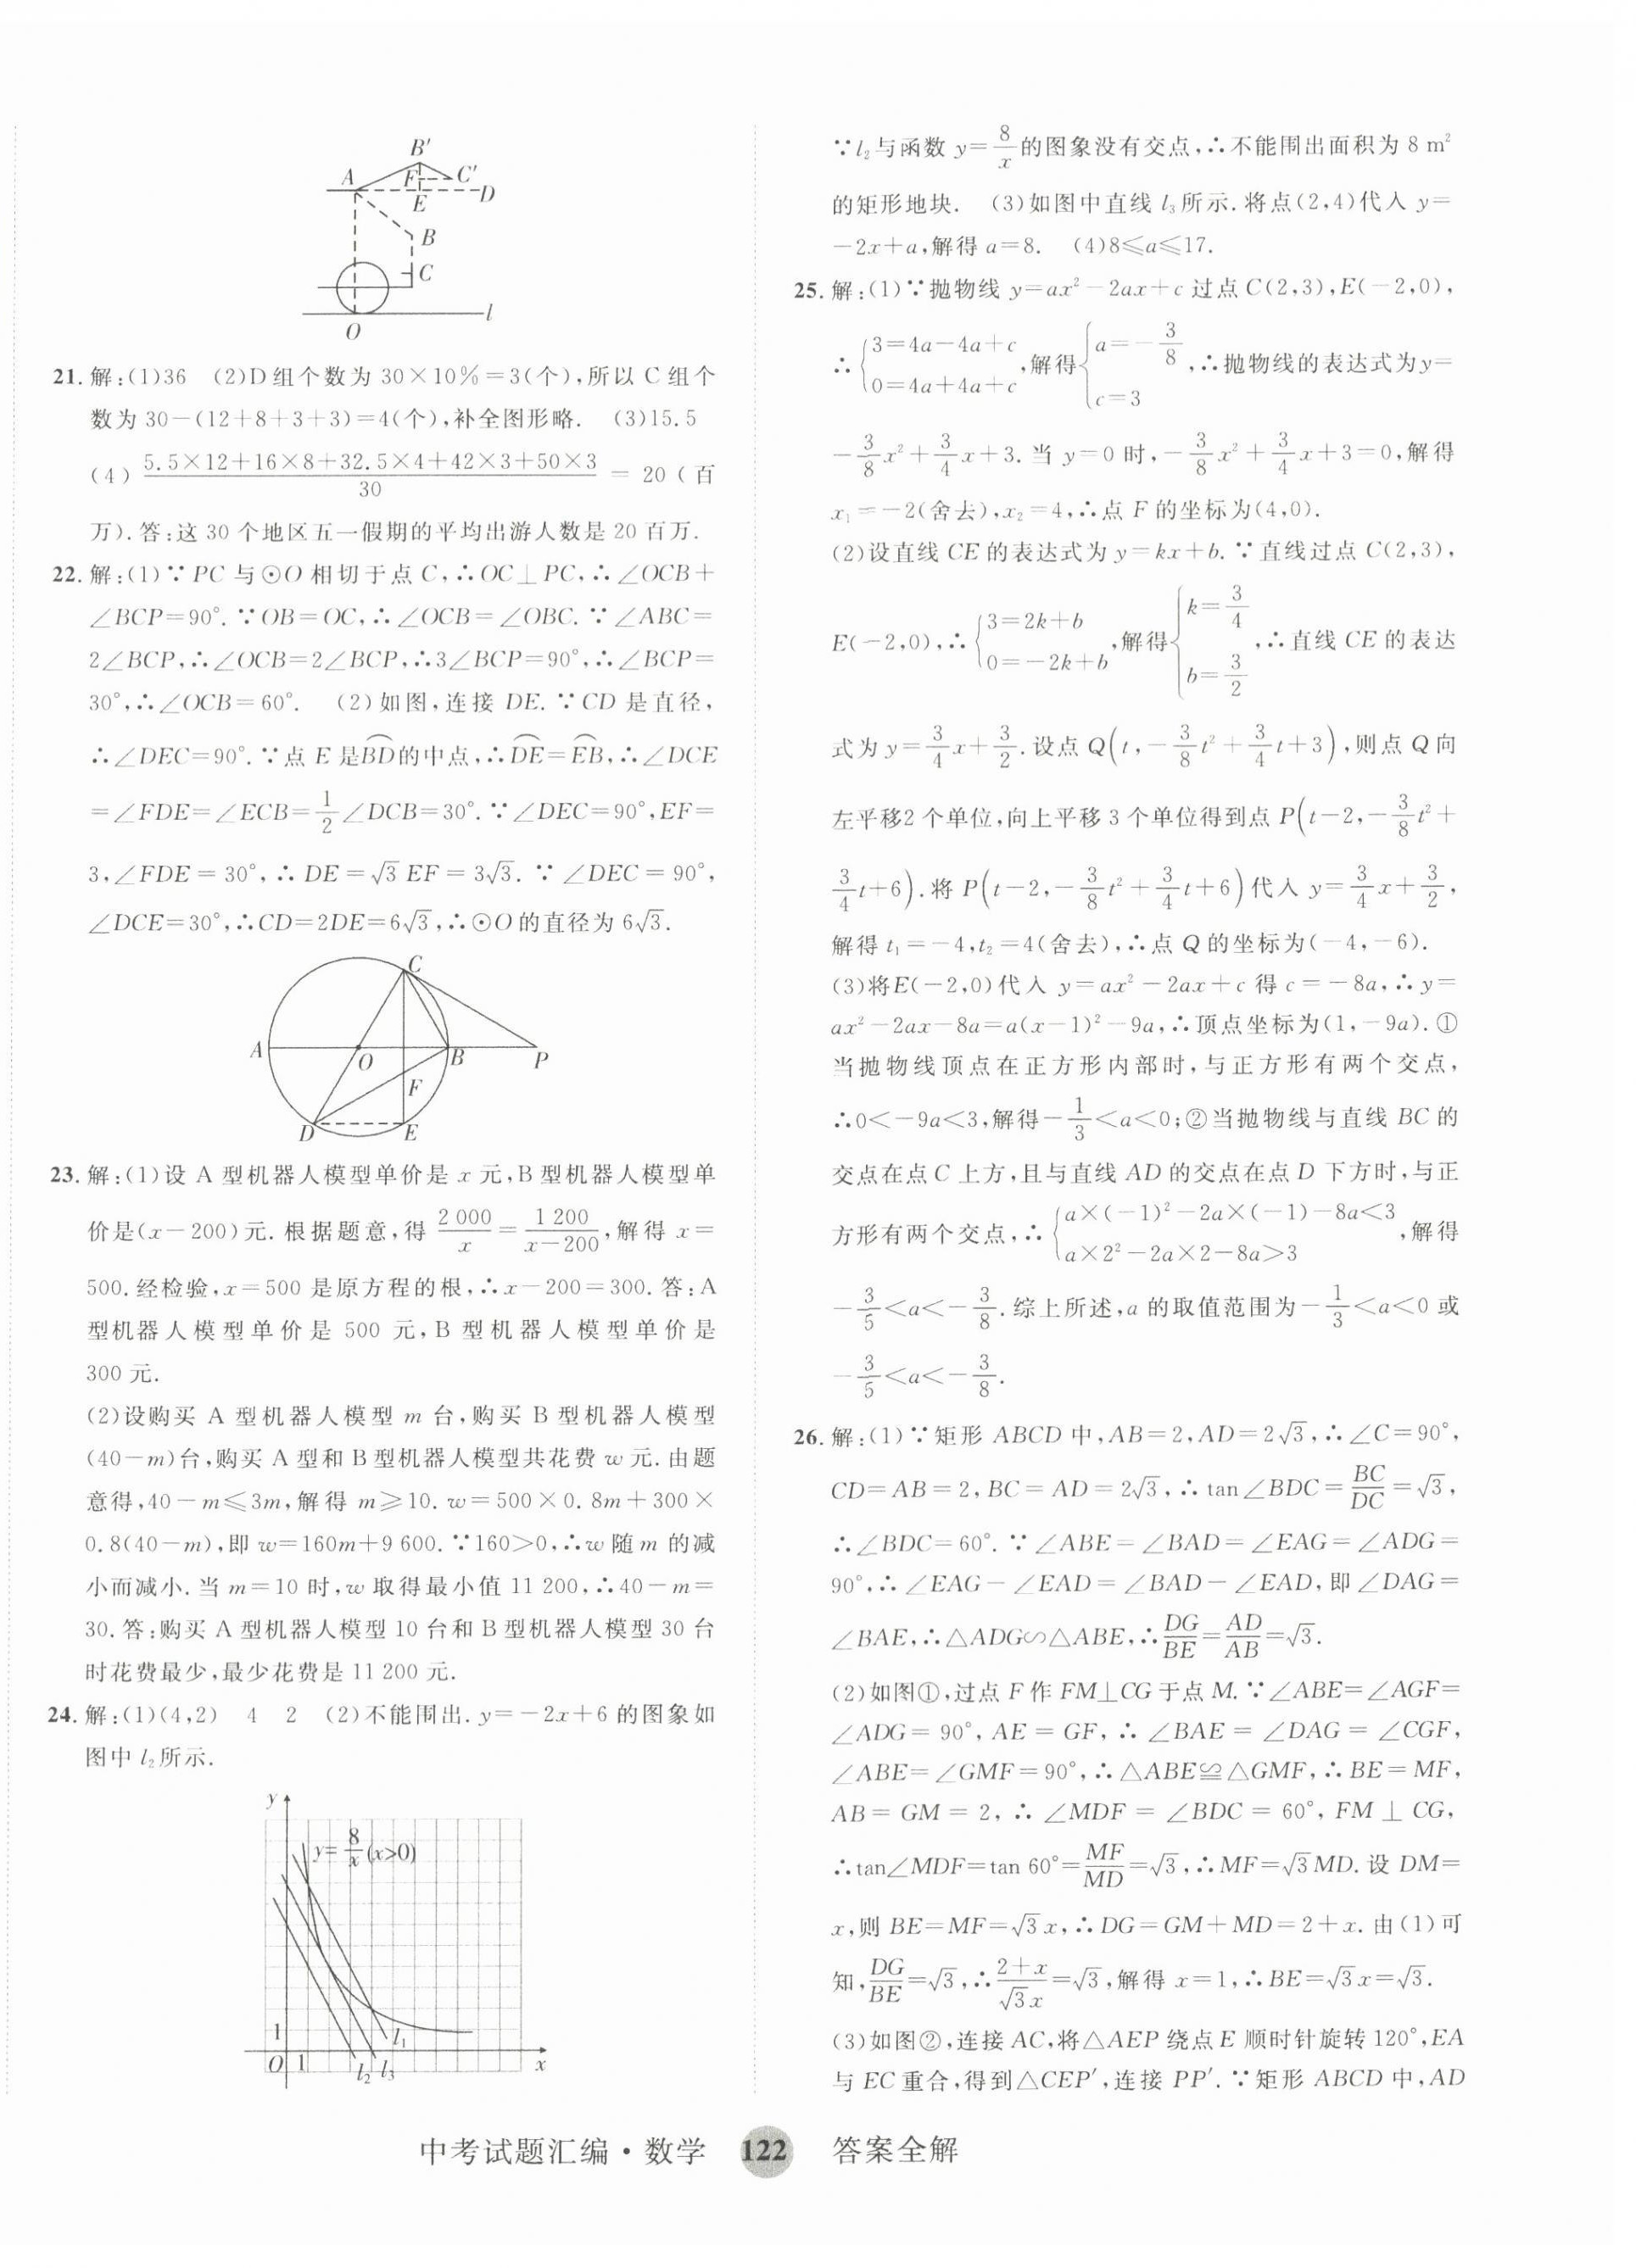 B′
A F C′
E D
B
C
l
O
21. 解:(1)36 (2)D组个数为30×10%=3(个),所以C组个
数为30-(12+8+3+3)=4(个),补全图形略. (3)15.5
(4) (5.5×12+16×8+32.5×4+42×3+50×3)/30 = 20(百
万).答:这30个地区五一假期的平均出游人数是20百万.
22. 解:(1)∵PC与⊙O相切于点C,∴OC⊥PC,∴∠OCB+
∠BCP=90°.∵OB=OC,∴∠OCB=∠OBC.∵∠ABC=
2∠BCP,∴∠OCB=2∠BCP,∴3∠BCP=90°,∴∠BCP=
30°,∴∠OCB=60°. (2)如图,连接DE.∵CD是直径,
∴∠DEC=90°.∵点E是⌒BD的中点,∴⌒DE=⌒EB,∴∠DCE
=∠FDE=∠ECB=1/2∠DCB=30°.∵∠DEC=90°,EF=
3,∠FDE=30°,∴DE=√3EF=3√3.∵∠DEC=90°,
∠DCE=30°,∴CD=2DE=6√3,∴⊙O的直径为6√3.
C
A O B P
F
D E
23. 解:(1)设A型机器人模型单价是x元,B型机器人模型单
价是(x-200)元.根据题意,得2 000/x=1 200/(x-200),解得x=
500.经检验,x=500是原方程的根,∴x-200=300.答:A
型机器人模型单价是500元,B型机器人模型单价是
300元.
(2)设购买A型机器人模型m台,购买B型机器人模型
(40-m)台,购买A型和B型机器人模型共花费w元.由题
意得,40-m≤3m,解得m≥10.w=500×0.8m+300×
0.8(40-m),即w=160m+9 600.∵160>0,∴w随m的减
小而减小.当m=10时,w取得最小值11 200,∴40-m=
30.答:购买A型机器人模型10台和B型机器人模型30台
时花费最少,最少花费是11 200元.
24. 解:(1)(4,2) 4 2 (2)不能围出.y=-2x+6的图象如
图中l₂所示.
y
y=8/x(x>0)
1 l₁
O 1 l₂ l₃ x
∵l₂与函数y=8/x的图象没有交点,∴不能围出面积为8 m²
的矩形地块. (3)如图中直线l₃所示.将点(2,4)代入y=
-2x+a,解得a=8. (4)8≤a≤17.
25. 解:(1)∵抛物线y=ax²-2ax+c过点C(2,3),E(-2,0),
∴{3=4a-4a+c 0=4a+4a+c,解得{a=-3/8 c=3,∴抛物线的表达式为y=
-3/8x²+3/4x+3.当y=0时,-3/8x²+3/4x+3=0,解得
x₁=-2(舍去),x₂=4,∴点F的坐标为(4,0).
(2)设直线CE的表达式为y=kx+b.∵直线过点C(2,3),
E(-2,0),∴{3=2k+b 0=-2k+b,解得{k=3/4 b=3/2,∴直线CE的表达
式为y=3/4x+3/2.设点Q(t,-3/8t²+3/4t+3),则点Q向
左平移2个单位,向上平移3个单位得到点P(t-2,-3/8t²+
3/4t+6).将P(t-2,-3/8t²+3/4t+6)代入y=3/4x+3/2,
解得t₁=-4,t₂=4(舍去),∴点Q的坐标为(-4,-6).
(3)将E(-2,0)代入y=ax²-2ax+c得c=-8a,∴y=
ax²-2ax-8a=a(x-1)²-9a,∴顶点坐标为(1,-9a).①
当抛物线顶点在正方形内部时,与正方形有两个交点,
∴0<-9a<3,解得-1/3<a<0;②当抛物线与直线BC的
交点在点C上方,且与直线AD的交点在点D下方时,与正
方形有两个交点,∴{a×(-1)²-2a×(-1)-8a<3 a×2²-2a×2-8a>3,解得
-3/5<a<-3/8.综上所述,a的取值范围为-1/3<a<0或
-3/5<a<-3/8.
26. 解:(1)∵矩形ABCD中,AB=2,AD=2√3,∴∠C=90°,
CD=AB=2,BC=AD=2√3,∴tan∠BDC=BC/DC=√3,
∴∠BDC=60°.∵∠ABE=∠BAD=∠EAG=∠ADG=
90°,∴∠EAG-∠EAD=∠BAD-∠EAD,即∠DAG=
∠BAE,∴△ADG∽△ABE,∴DG/BE=AD/AB=√3.
(2)如图①,过点F作FM⊥CG于点M.∵∠ABE=∠AGF=
∠ADG=90°,AE=GF,∴∠BAE=∠DAG=∠CGF,
∠ABE=∠GMF=90°,∴△ABE≌△GMF,∴BE=MF,
AB=GM=2,∴∠MDF=∠BDC=60°,FM⊥CG,
∴tan∠MDF=tan 60°=MF/MD=√3,∴MF=√3MD.设DM=
x,则BE=MF=√3x,∴DG=GM+MD=2+x.由(1)可
知,DG/BE=√3,∴(2+x)/√3x=√3,解得x=1,∴BE=√3x=√3.
(3)如图②,连接AC,将△AEP绕点E顺时针旋转120°,EA
与EC重合,得到△CEP′,连接PP′.∵矩形ABCD中,AD
中考试题汇编·数学 122 答案全解